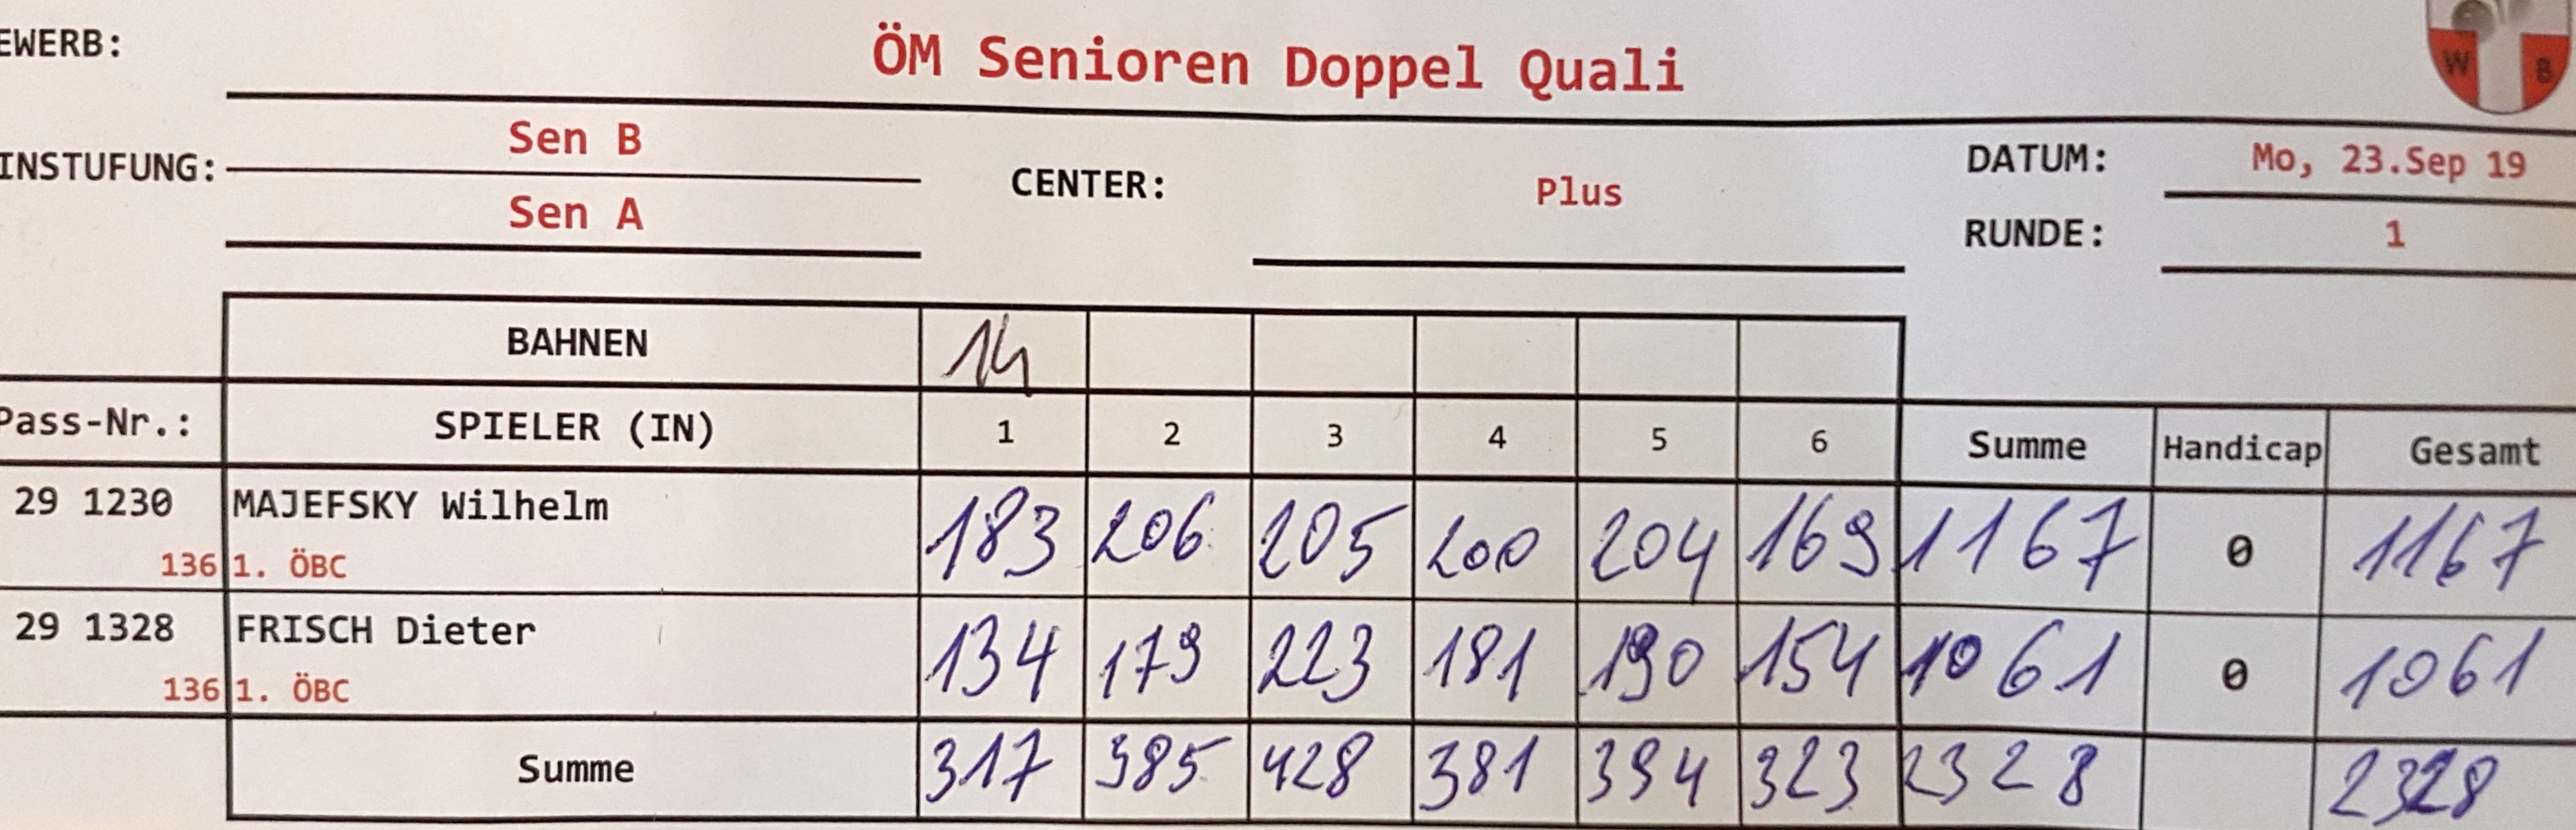 EWERB: ÖM Senioren Doppel Quali
W B
INSTUFUNG: Sen B
Sen A
CENTER: Plus
DATUM: Mo, 23.Sep 19
RUNDE: 1
BAHNEN 14
Pass-Nr.: SPIELER (IN) 1 2 3 4 5 6 Summe Handicap Gesamt
29 1230 MAJEFSKY Wilhelm 183 206 205 200 204 169 1167 0 1167
136 1. ÖBC
29 1328 FRISCH Dieter 134 179 223 181 190 154 1061 0 1061
136 1. ÖBC
Summe 317 385 428 381 394 323 2328 2328